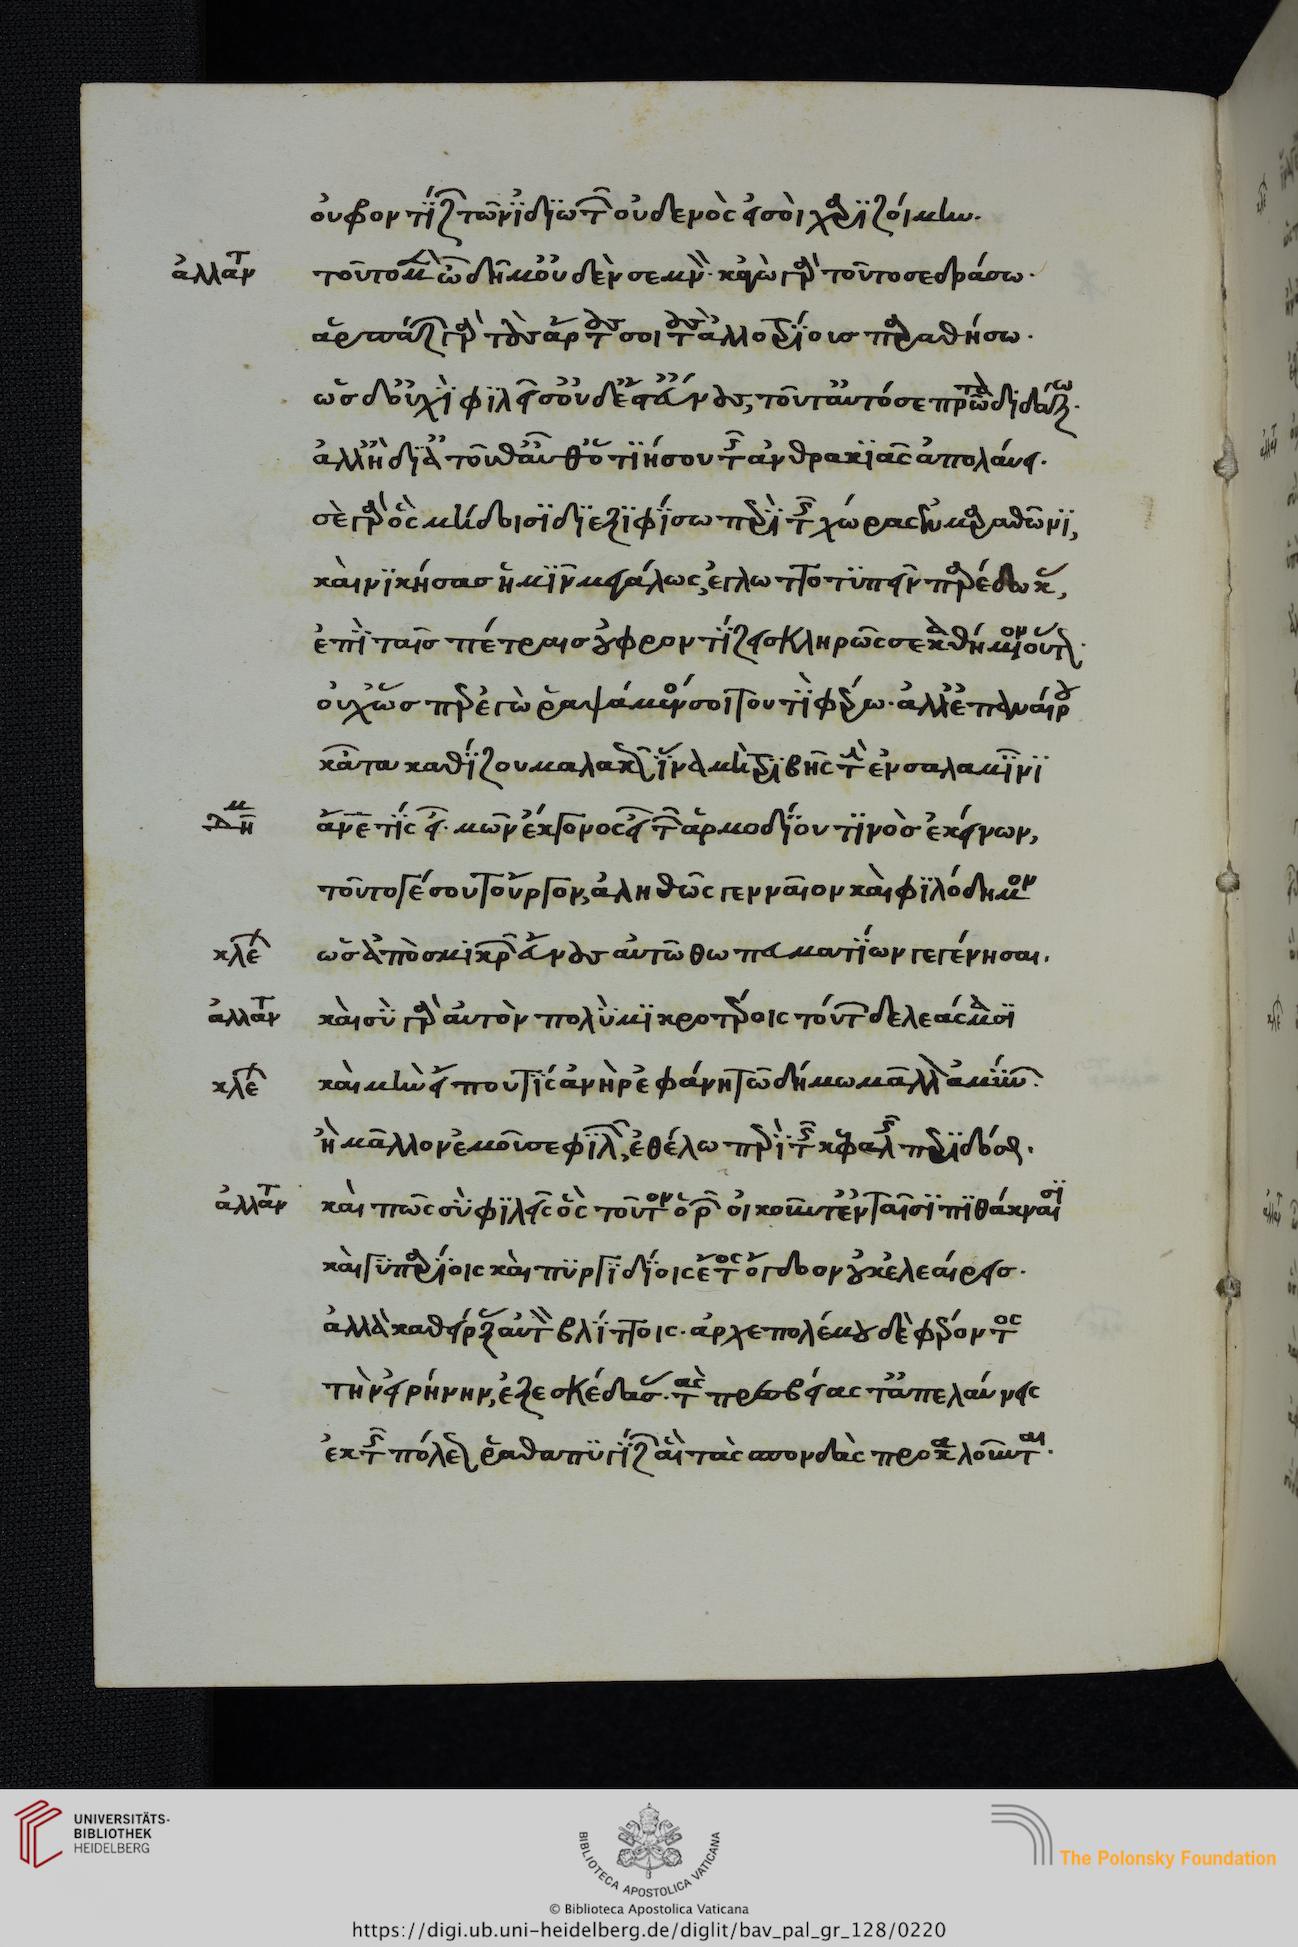 οὐ φροντίζων τῶν ἰδιωτῶν οὐδενὸς εἰ σοὶ χαριζοίμην.
ἀλλαν τοῦτο μὲν ὦ δῆμ' οὐδὲν σεμνὸν· κἀγὼ γὰρ τοῦτο σε δράσω·
ἁρπάζων γὰρ τοὺς ἄρτους σοι τοὺς ἀλλοτρίοις παραθήσω·
ὡς δ' οὐχὶ φιλεῖ σ' οὐδ' ἔστ' εὔνους, τοῦτ' αὐτό σε πρῶτα διδάξω·
ἀλλ' ἢ διὰ τοῦτ' αὔθ' ὅτιή σου τῆς ἀνθρακιᾶς ἀπολαύει.
σὲ γὰρ ὃς μήδοισι διεξιφίσω περὶ τῆς χώρας ἐν μαραθῶνι,
καὶ νικήσας ἡμῖν μεγάλως, ἐγλωττοτυπεῖν παρέδωκας,
ἐπὶ ταῖς πέτραις οὐ φροντίζει σκληρῶς σε καθήμενον οὕτως.
οὐχ ὥσπερ ἐγὼ ῥαψάμενός σοι τουτὶ φέρω· ἀλλ' ἐπαναίρου
κᾆτα καθίζου μαλακῶς ἵνα μὴ τρίβῃς τὴν ἐν σαλαμῖνι
δημ ἄνε τίς εἶ· μῶν ἔκγονος εἶ τῶν ἁρμοδίου τινὸς ἐκείνων,
τοῦτο γέ σου τοὖργον, ἀληθῶς γενναῖον καὶ φιλόδημον
κλε ὡς ἀπὸ σμικρῶν εὔνους αὐτῶ θωπευματίων γεγένησαι.
ἀλλαν καὶ σὺ γὰρ αὐτὸν πολὺ μικροτέροις τούτων δελεάσμασι
κλε καὶ μὴν εἴ που τίς ἀνὴρ ἐφάνη τῶ δήμω μᾶλλον ἀμύνων.
ἢ μᾶλλον ἐμοῦ σε φιλῶν, ἐθέλω περὶ τῆς κεφαλῆς περιδόσθαι.
ἀλλαν καὶ πῶς σὺ φιλεῖς ὃς τοῦτον ὁρῶν οἰκοῦντ' ἐν ταῖσι πιθάκναισι
καὶ γυπαρίοις καὶ πυργιδίοις ἔτος ὄγδοον οὐκ ἐλεαίρεις·
ἀλλὰ καθείρξας αὐτὸν βλίττοις· ἀρχεπολέμου δὲ φέροντος
τὴν εἰρήνην, ἐξεσκέδασας· τὰς πρεσβείας τ' ἀπελαύνεις
ἐκ τῆς πόλεως ῥαθαπυγίζων αἳ τὰς σπονδὰς προκαλοῦνται.
UNIVERSITÄTS-
BIBLIOTHEK
HEIDELBERG
BIBLIOTECA APOSTOLICA VATICANA
© Biblioteca Apostolica Vaticana
The Polonsky Foundation
https://digi.ub.uni-heidelberg.de/diglit/bav_pal_gr_128/0220